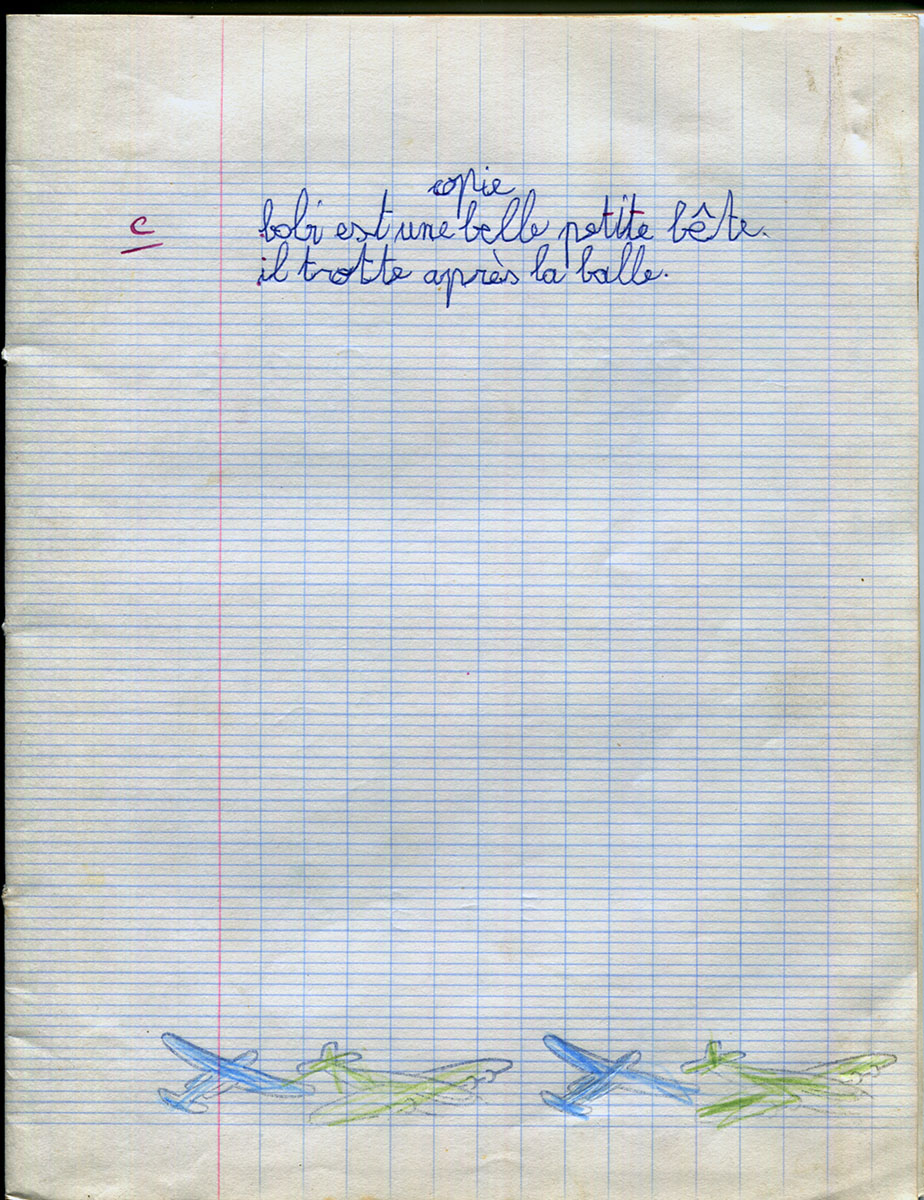 copie
c
bobi est une belle petite bête.
il trotte après la balle.